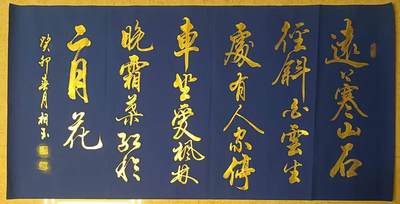 遠上寒山石
徑斜白雲生
處有人家停
車坐愛楓林
晚霜葉紅於
二月花
癸卯春月